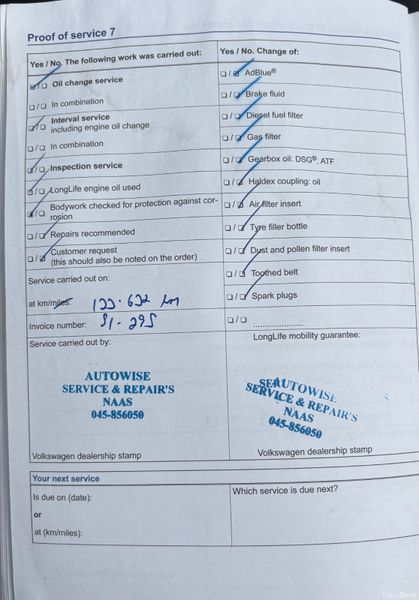 Proof of service 7
Yes / No. The following work was carried out:
Oil change service
In combination
Interval service
including engine oil change
In combination
Inspection service
LongLife engine oil used
Bodywork checked for protection against cor-
rosion
Repairs recommended
Customer request
(this should also be noted on the order)
Service carried out on:
at km/miles:
Invoice number:
Service carried out by:
AUTOWISE
SERVICE & REPAIR'S
NAAS
045-856050
Volkswagen dealership stamp
Yes / No. Change of:
AdBlue®
Brake fluid
Diesel fuel filter
Gas filter
Gearbox oil: DSG®, ATF
Haldex coupling: oil
Air filter insert
Tyre filler bottle
Dust and pollen filter insert
Toothed belt
Spark plugs
LongLife mobility guarantee:
AUTOWISE
SERVICE & REPAIR'S
NAAS
045-856050
Volkswagen dealership stamp
Your next service
Is due on (date):
or
at (km/miles):
Which service is due next?